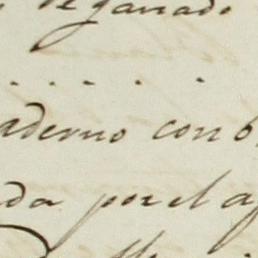 de ganado
aderno con 6
da por el a